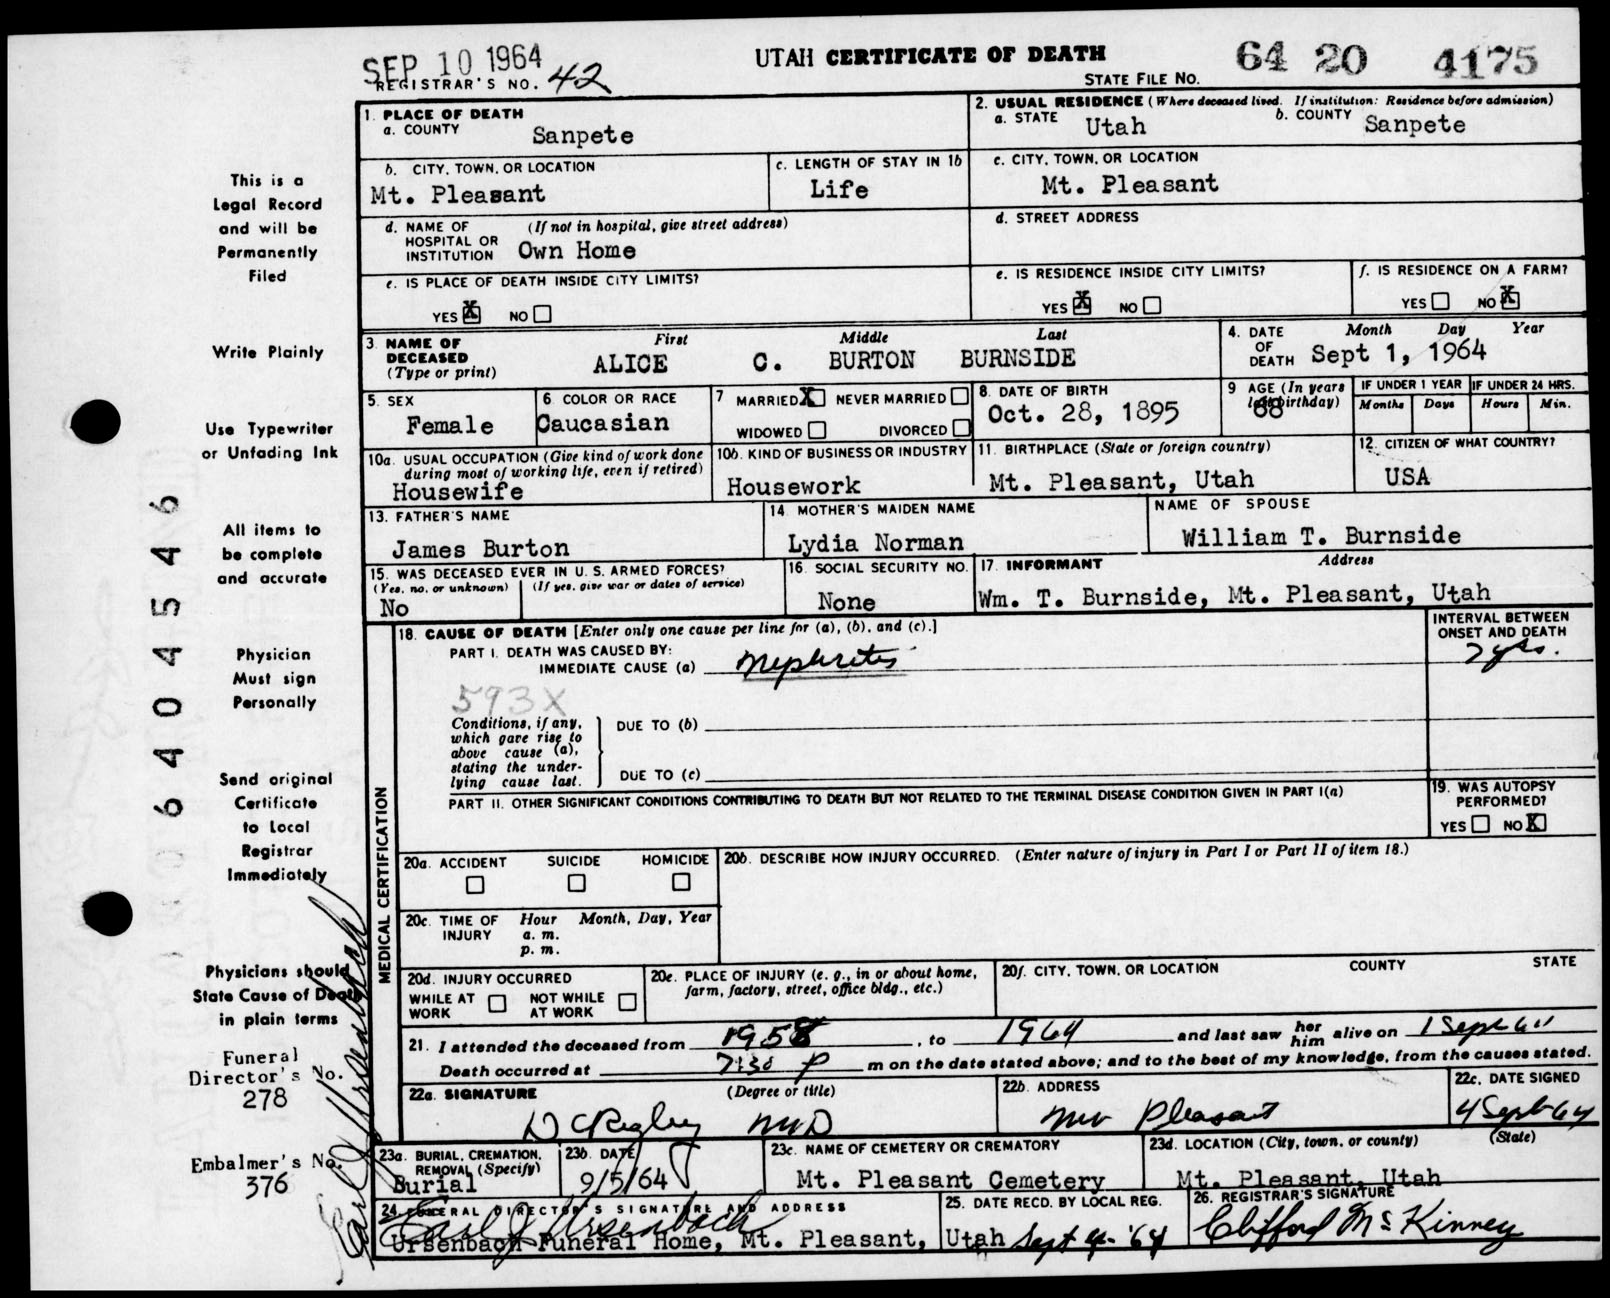 SEP 10 1964
UTAH CERTIFICATE OF DEATH
64 20 4175
REGISTRAR'S NO. 42
STATE FILE NO.
1. PLACE OF DEATH
a. COUNTY Sanpete
2. USUAL RESIDENCE (Where deceased lived. If institution: Residence before admission)
a. STATE Utah b. COUNTY Sanpete
b. CITY, TOWN, OR LOCATION
Mt. Pleasant
c. LENGTH OF STAY IN 1b
Life
c. CITY, TOWN, OR LOCATION
Mt. Pleasant
d. NAME OF HOSPITAL OR INSTITUTION (If not in hospital, give street address)
Own Home
d. STREET ADDRESS
e. IS PLACE OF DEATH INSIDE CITY LIMITS?
YES X NO
e. IS RESIDENCE INSIDE CITY LIMITS?
YES X NO
f. IS RESIDENCE ON A FARM?
YES NO X
3. NAME OF DECEASED (Type or print)
First Middle Last
ALICE C. BURTON BURNSIDE
4. DATE OF DEATH Month Day Year
Sept 1, 1964
5. SEX
Female
6. COLOR OR RACE
Caucasian
7 MARRIED X NEVER MARRIED
WIDOWED DIVORCED
8. DATE OF BIRTH
Oct. 28, 1895
9 AGE (In years last birthday)
68
IF UNDER 1 YEAR
Months Days
IF UNDER 24 HRS.
Hours Min.
10a. USUAL OCCUPATION (Give kind of work done during most of working life, even if retired)
Housewife
10b. KIND OF BUSINESS OR INDUSTRY
Housework
11. BIRTHPLACE (State or foreign country)
Mt. Pleasant, Utah
12. CITIZEN OF WHAT COUNTRY?
USA
13. FATHER'S NAME
James Burton
14. MOTHER'S MAIDEN NAME
Lydia Norman
NAME OF SPOUSE
William T. Burnside
15. WAS DECEASED EVER IN U. S. ARMED FORCES?
(Yes, no, or unknown) (If yes, give war or dates of service)
No
16. SOCIAL SECURITY NO.
None
17. INFORMANT Address
Wm. T. Burnside, Mt. Pleasant, Utah
MEDICAL CERTIFICATION
18. CAUSE OF DEATH [Enter only one cause per line for (a), (b), and (c).]
INTERVAL BETWEEN ONSET AND DEATH
PART I. DEATH WAS CAUSED BY:
IMMEDIATE CAUSE (a) Nephritis
yrs.
593X
Conditions, if any, which gave rise to above cause (a), stating the underlying cause last.
DUE TO (b)
DUE TO (c)
PART II. OTHER SIGNIFICANT CONDITIONS CONTRIBUTING TO DEATH BUT NOT RELATED TO THE TERMINAL DISEASE CONDITION GIVEN IN PART I(a)
19. WAS AUTOPSY PERFORMED?
YES NO X
20a. ACCIDENT SUICIDE HOMICIDE
20b. DESCRIBE HOW INJURY OCCURRED. (Enter nature of injury in Part I or Part II of item 18.)
20c. TIME OF INJURY Hour Month, Day, Year
a. m.
p. m.
20d. INJURY OCCURRED
WHILE AT WORK NOT WHILE AT WORK
20e. PLACE OF INJURY (e. g., in or about home, farm, factory, street, office bldg., etc.)
20f. CITY, TOWN, OR LOCATION COUNTY STATE
21. I attended the deceased from 1958, to 1964 and last saw her him alive on 1 Sept 64
Death occurred at 7:30 P m on the date stated above; and to the best of my knowledge, from the causes stated.
22a. SIGNATURE (Degree or title)
D C Rigby MD
22b. ADDRESS
Mt Pleasant
22c. DATE SIGNED
4 Sept 64
23a. BURIAL, CREMATION, REMOVAL (Specify)
Burial
23b. DATE
9/5/64
23c. NAME OF CEMETERY OR CREMATORY
Mt. Pleasant Cemetery
23d. LOCATION (City, town, or county) (State)
Mt. Pleasant, Utah
24. FUNERAL DIRECTOR'S SIGNATURE AND ADDRESS
Earl J Ursenbach
Ursenbach Funeral Home, Mt. Pleasant, Utah
25. DATE RECD. BY LOCAL REG.
Sept 4 - '64
26. REGISTRAR'S SIGNATURE
Clifford McKinney
This is a
Legal Record
and will be
Permanently
Filed
Write Plainly
Use Typewriter
or Unfading Ink
All items to
be complete
and accurate
Physician
Must sign
Personally
Send original
Certificate
to Local
Registrar
Immediately
Physicians should
State Cause of Death
in plain terms
Funeral
Director's No.
278
Embalmer's No.
376
Earl J Ursenbach
64045546